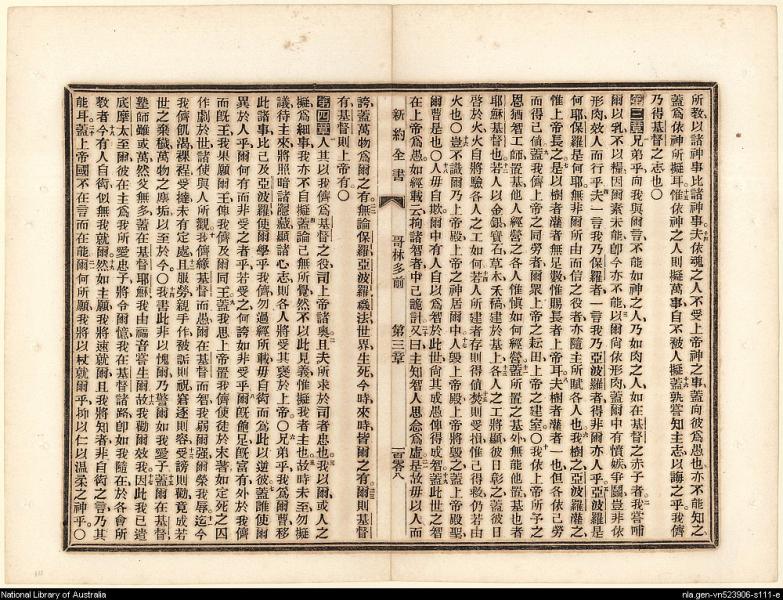 所教以諸神事比諸神事夫依魂之人不受上帝神之事蓋向彼爲愚也亦不能知之
蓋爲依神所擬耳惟依神之人則擬萬事自不被人擬蓋孰嘗知主志以誨之乎我儕
乃得基督之志也〇
第三章兄弟乎向我與爾言不能如神之人乃如肉之人如在基督之赤子者我嘗哺
爾以乳不以糧因爾素未能卽今亦不能以爾尚依形肉蓋爾中有憤嫉爭鬬豈非依
形肉效人而行乎夫一言我乃保羅者一言我乃亞波羅者得非爾亦人乎亞波羅是
何耶保羅是何耶無非爾所由而信之役者亦隨主所賦各人也我樹之亞波羅灌之
惟上帝長之是以樹者灌者無足穀惟賜長者上帝耳夫樹者灌者一也但各依己勞
而得己値蓋我儕上帝之同勞者爾爲上帝之耘田上帝之建室〇我依上帝所予之
恩猶智工師置基他人經營之各人惟愼如何經營蓋所置之基外無能他置基也者
耶穌基督也若人以金銀寶石草木禾稿建於基上各人之工將顯彼日彰之蓋彼日
啓於火火自將驗各人之工如何若人所建者存則得値焚則受損惟己得救仍若由
火也〇豈不識爾乃上帝殿上帝之神居爾中人毁上帝殿上帝將毁之蓋上帝殿聖
爾曹是也〇人毋自欺爾中有人自以爲智於此世向其或愚俾得成智蓋此世之智
在上帝爲愚如經載云拘諸智者中己詭計又曰主知智人思念爲虛是故毋以人而
新約全書
哥林多前
第三章
一百零八
誇蓋萬物爲爾之有無論保羅亞波羅磯法世界生死今時來時皆爾之有爾則基督
有基督則上帝有〇
第四章人其以我儕爲基督之役司上帝諸奥且夫所求於司者忠也我以爾或人之
擬爲細事我亦不自擬蓋論己無所覺然不以此見義惟擬我者主也故時未至勿擬
議待主來將照暗諸隱藏顯諸心志則各人將受其褒於上帝〇兄弟乎我爲爾曹移
此諸事比己及亞波羅使爾學乎我儕勿過經所載毋自衒而爲此以逆彼蓋誰使爾
異於人乎爾何有而非受之者乎若受之何誇如非受乎爾旣飽足旣富有外於我儕
而旣王我果願爾王俾我儕及爾同王蓋我思上帝置我儕使徒於末著如定死之囚
作劇於世諸使與人所觀我儕緣基督而愚爾在基督而智我弱爾强爾榮我辱迄今
我儕飢渴裸裎受撻未有定處且服勞親手作被詬則祝窘逐則容受謗則勸竟成若
世之棄穢萬物之塵垢以至於今〇我書此非以愧爾乃警爾如我愛子蓋爾在基督
塾師雖或萬然父無多蓋在基督耶穌我由福音嘗生爾故我勸爾效我因此我已遣
底摩太至爾彼在主爲我所愛忠子將令爾憶我在基督諸路卽如我隨在於各會所
敎者今有人自衒似無我就爾然如主願我將速就爾且我將知者非自衒之言乃其
能耳蓋上帝國不在言而在能爾何所願我將以杖就爾乎抑以仁以温柔之神乎〇
National Library of Australia
nla.gen-vn523906-s111-e